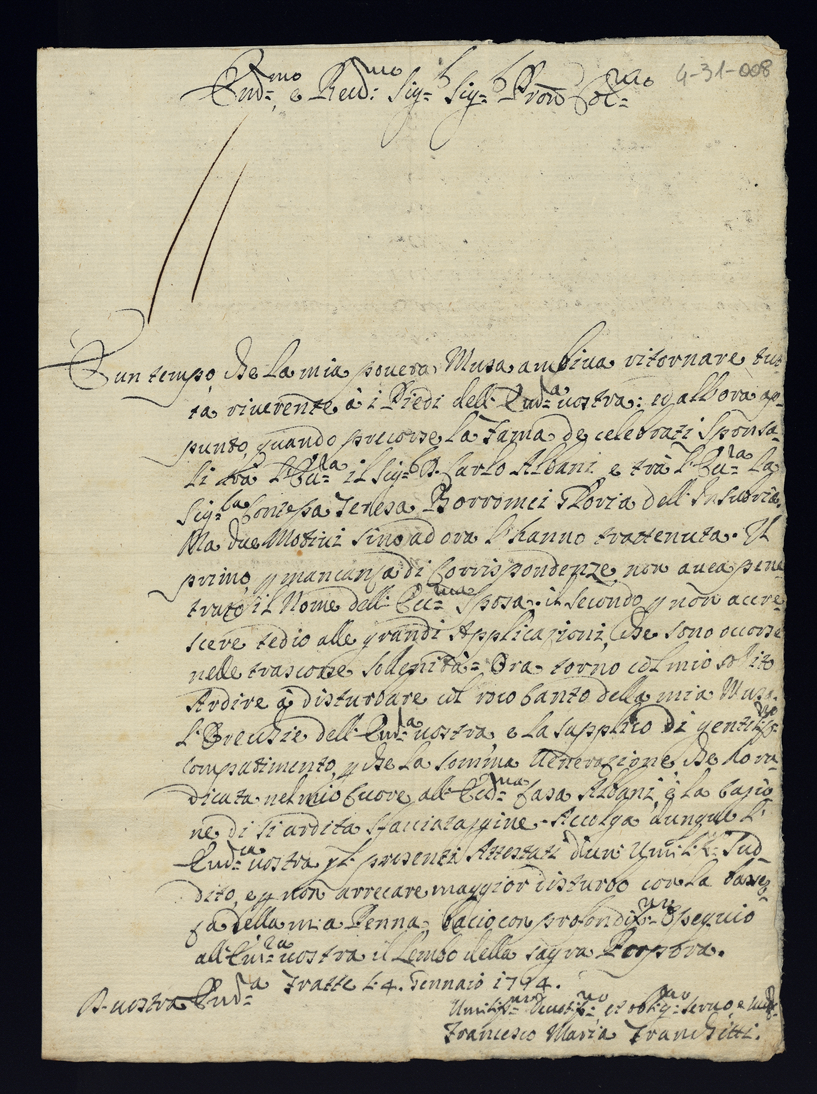 4-31-008
Em:mo e Reu:d:mo Sig:r Sig:r Pron Col:mo
È un tempo, che la mia pouera Musa ambiua ritornare tut
ta riuerente à i Piedi dell' Em:za uostra: ed all'ora ap-
punto, quando precorse la Fama de celebrati Sponsa-
li trà l'Ecc:za il Sig:r D. Carlo Albani, e trà l'Ecc:za la
Sig:ra Contessa Teresa Borromei Gloria dell'Insubria.
Ma due Motiui sino ad ora l'hanno trattenuta. Il
primo p mancanza di Corrispondenze non auea pene
trato il Nome dell' Ecc:ma Sposa: il secondo p non accre
scere tedio alle grandi Applicazioni, che sono occorse
nelle trascorse sollenità= Ora torno col mio solito
Ardire à disturbare col roco Canto della mia Musa
l'Orecchie dell' Em:za uostra, e la supplico di gentiliss:mo
compatimento, p che la somma Uenerazione, che hò ra
dicata nel mio Cuore all' Ecc:ma Casa Albani, è la cagio
ne di sì ardita sfacciataggine. Accolga dunque l'
Em:za uostra p li presenti Attestati d'un Umiliss: Sud-
dito, e p non arrecare maggior disturbo con la
della mia Penna= bacio con profondiss:mo Ossequio
all' Em:za uostra il Lembo della sagra Porpora.
D. uostra Em:za Fratte li 4. Gennaio 1714.
Umiliss:mo Deuotiss:mo, et obblig:mo seruo, e
Francesco Maria Franchitti.